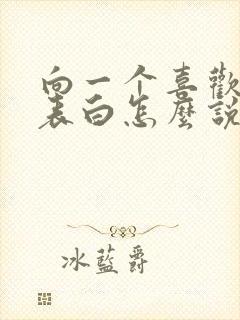 向一个喜歡
表白怎麼說
冰藍爵